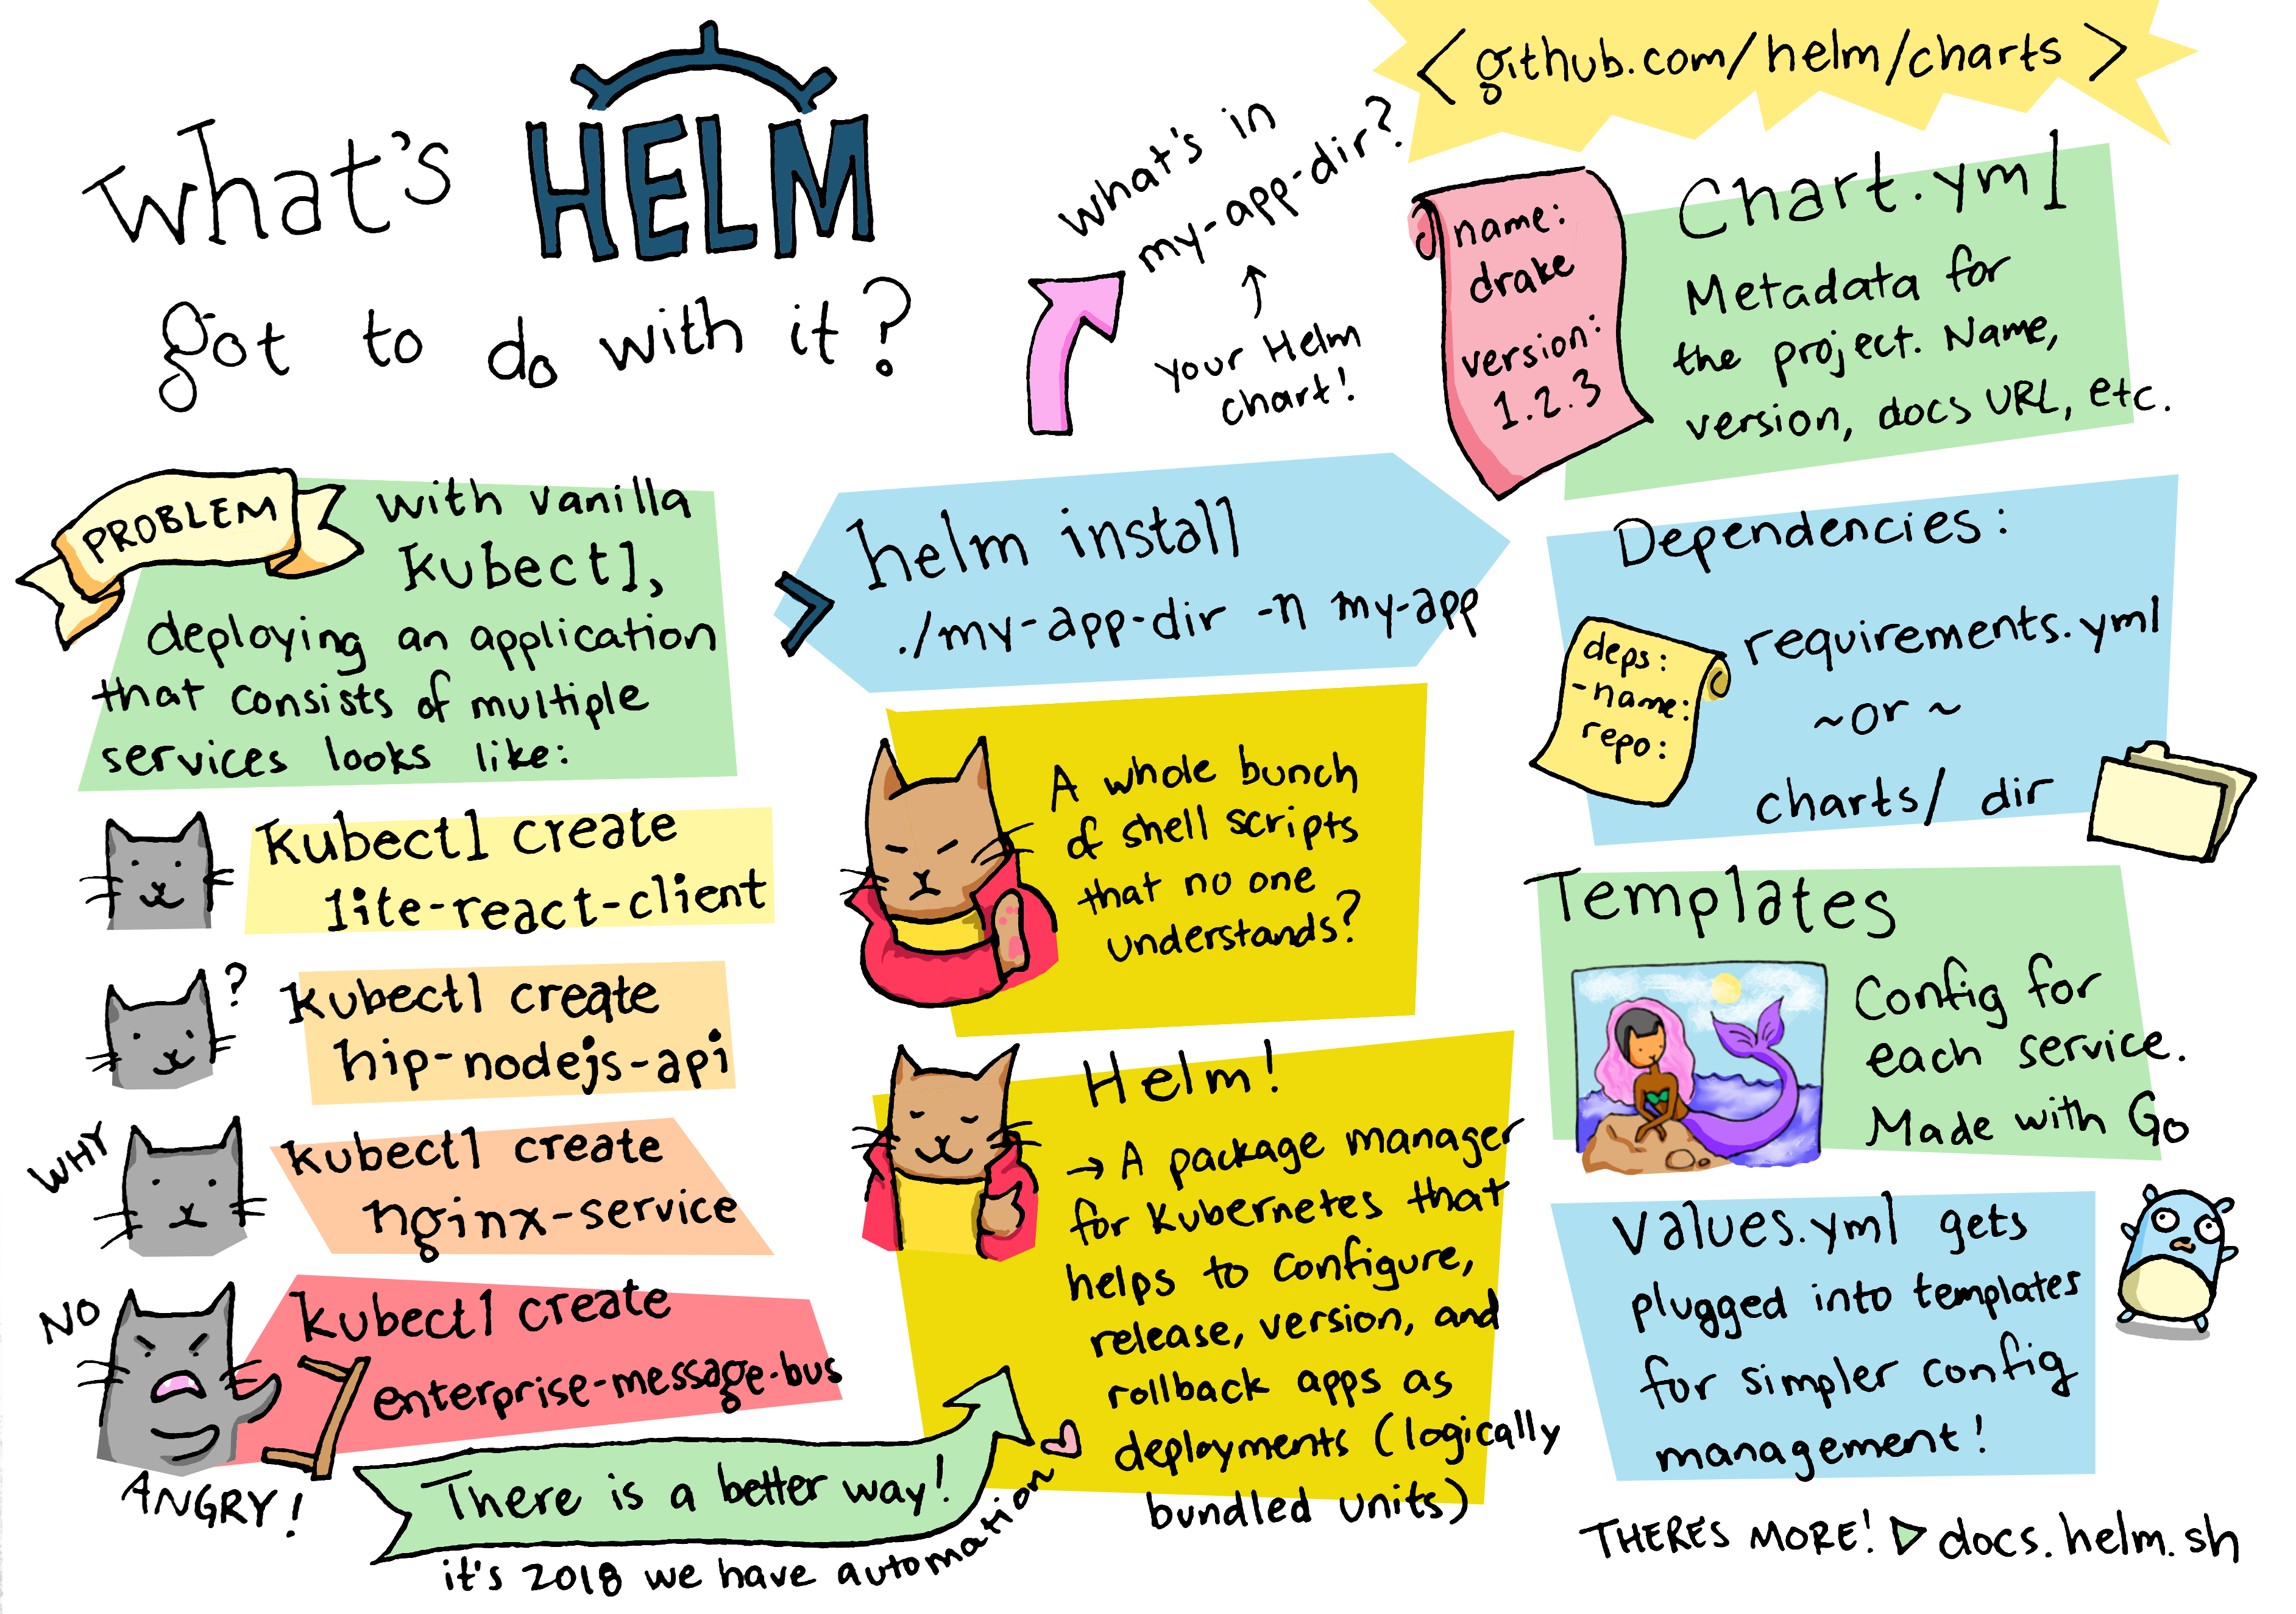 what's HELM
got to do with it?
PROBLEM
with vanilla
kubectl,
deploying an application
that consists of multiple
services looks like:
kubectl create
lite-react-client
?
kubectl create
hip-nodejs-api
WHY
kubectl create
nginx-service
NO
kubectl create
enterprise-message-bus
ANGRY!
There is a better way!
it's 2018 we have automation
helm install
./my-app-dir -n my-app
A whole bunch
of shell scripts
that no one
understands?
Helm!
→ A package manager
for kubernetes that
helps to configure,
release, version, and
rollback apps as
deployments (logically
bundled units)
what's in
my-app-dir?
your Helm
chart!
< github.com/helm/charts >
name:
drake
version:
1.2.3
Chart.yml
Metadata for
the project. Name,
version, docs URL, etc.
Dependencies:
deps:
-name:
repo:
requirements.yml
~or~
charts/ dir
Templates
Config for
each service.
Made with Go
Values.yml gets
plugged into templates
for simpler config
management!
THERE'S MORE! ▷ docs.helm.sh